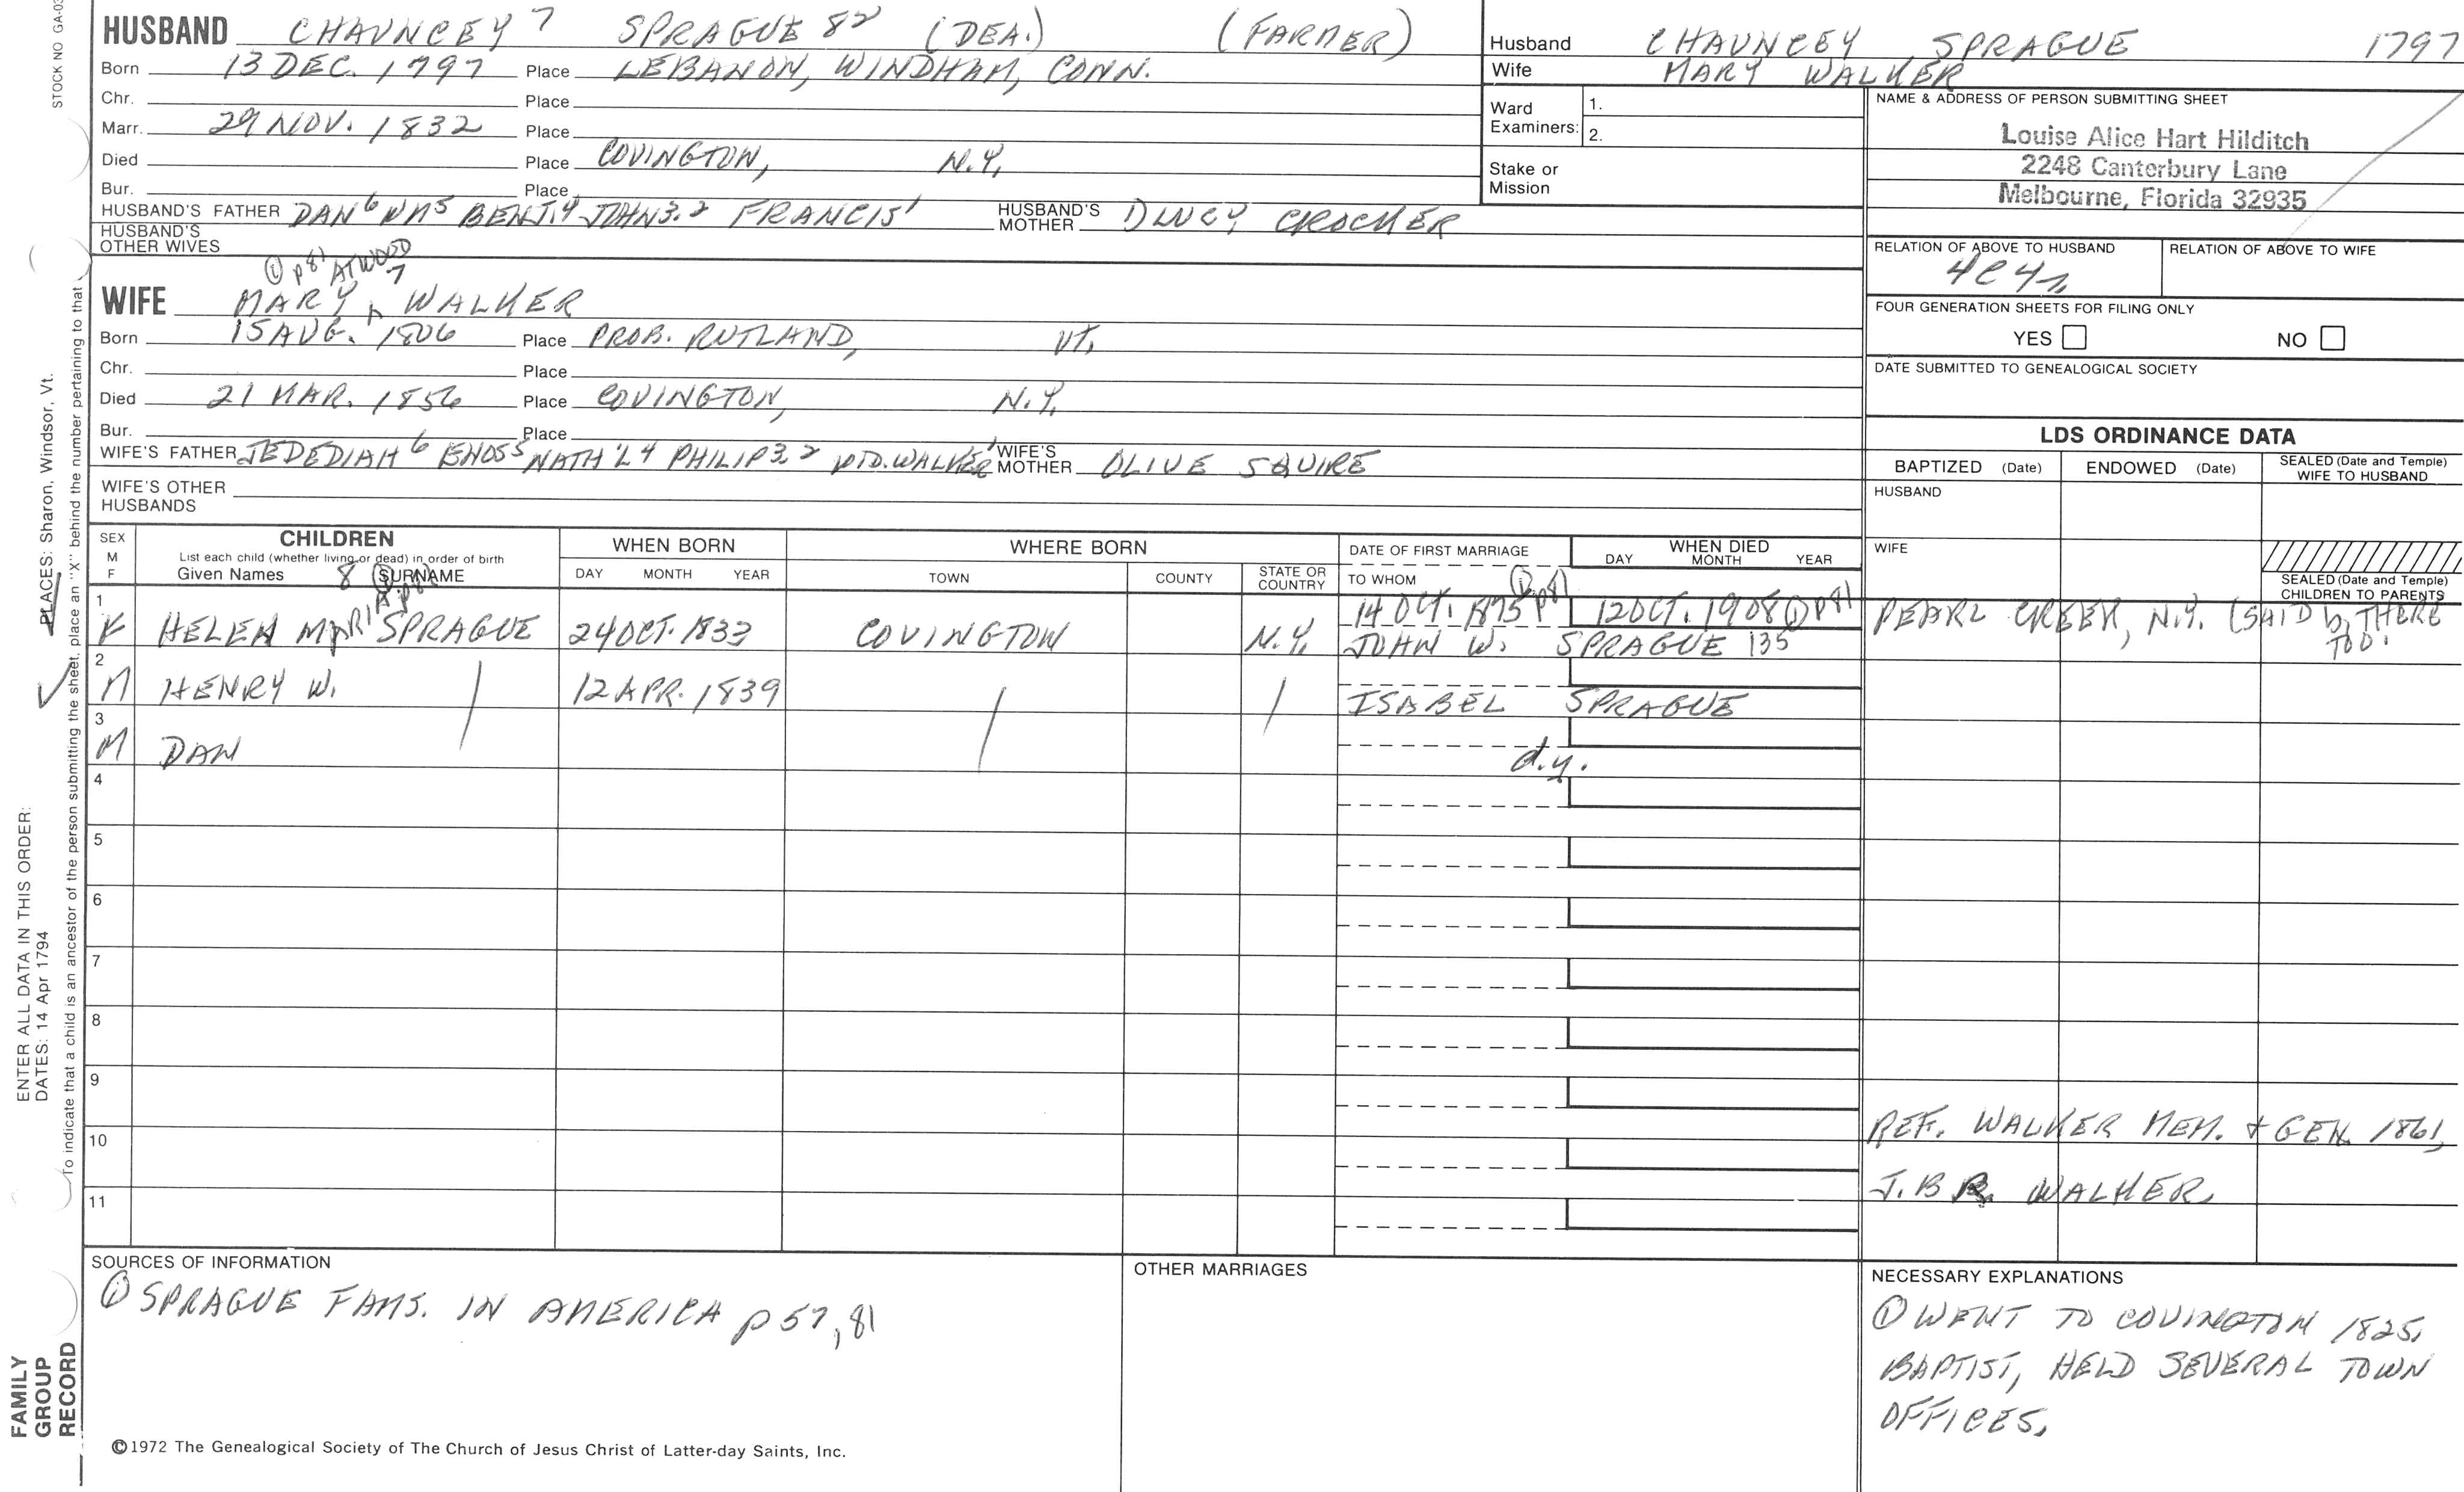 STOCK NO GA-03
HUSBAND CHAUNCEY 7 SPRAGUE 82 (DEA.) (FARMER)
Born 13 DEC. 1797 Place LEBANON, WINDHAM, CONN.
Chr. Place
Marr. 29 NOV. 1832 Place
Died Place COVINGTON, N.Y.
Bur. Place
HUSBAND'S FATHER DAN 6 WM 5 BENJ. 4 JOHN 3.2 FRANCIS 1 HUSBAND'S MOTHER LUCY CROCKER
HUSBAND'S OTHER WIVES
① p 81 ATWOOD 7
WIFE MARY ^ WALKER
Born 15 AUG. 1806 Place PROB. RUTLAND, VT.
Chr. Place
Died 21 MAR. 1856 Place COVINGTON, N.Y.
Bur. Place
WIFE'S FATHER JEDEDIAH 6 ENOS 5 NATH'L 4 PHILIP 3,2 WID. WALKER 1 WIFE'S MOTHER OLIVE SQUIRE
WIFE'S OTHER HUSBANDS
Husband CHAUNCEY SPRAGUE 1797
Wife MARY WALKER
Ward Examiners: 1.
2.
Stake or Mission
NAME & ADDRESS OF PERSON SUBMITTING SHEET
Louise Alice Hart Hilditch
2248 Canterbury Lane
Melbourne, Florida 32935
RELATION OF ABOVE TO HUSBAND RELATION OF ABOVE TO WIFE
4C4r
FOUR GENERATION SHEETS FOR FILING ONLY
YES NO
DATE SUBMITTED TO GENEALOGICAL SOCIETY
LDS ORDINANCE DATA
BAPTIZED (Date) ENDOWED (Date) SEALED (Date and Temple) WIFE TO HUSBAND
HUSBAND
WIFE
SEALED (Date and Temple) CHILDREN TO PARENTS
SEX M F
CHILDREN
List each child (whether living or dead) in order of birth
Given Names 8 SURNAME
WHEN BORN
DAY MONTH YEAR
WHERE BORN
TOWN COUNTY STATE OR COUNTRY
DATE OF FIRST MARRIAGE
TO WHOM
WHEN DIED
DAY MONTH YEAR
1 F HELEN MARIA ① p81 SPRAGUE 24 OCT. 1833 COVINGTON N.Y. 14 OCT. 1875 ① p81 12 OCT. 1908 ① p81 PEARL CREEK, N.Y. (SAID b, THERE TOO.
JOHN W. SPRAGUE 135
2 M HENRY W. 12 APR. 1839 ISABEL SPRAGUE
3 M DAN d.y.
4
5
6
7
8
9
10
11
REF. WALKER MEM. + GEN. 1861,
J.B.R. WALKER
SOURCES OF INFORMATION
① SPRAGUE FAMS. IN AMERICA p 57, 81
OTHER MARRIAGES
NECESSARY EXPLANATIONS
① WENT TO COVINGTON 1825.
BAPTIST, HELD SEVERAL TOWN
OFFICES.
©1972 The Genealogical Society of The Church of Jesus Christ of Latter-day Saints, Inc.
FAMILY
GROUP
RECORD
ENTER ALL DATA IN THIS ORDER:
DATES: 14 Apr 1794
PLACES: Sharon, Windsor, Vt.
To indicate that a child is an ancestor of the person submitting the sheet, place an "X" behind the number pertaining to that